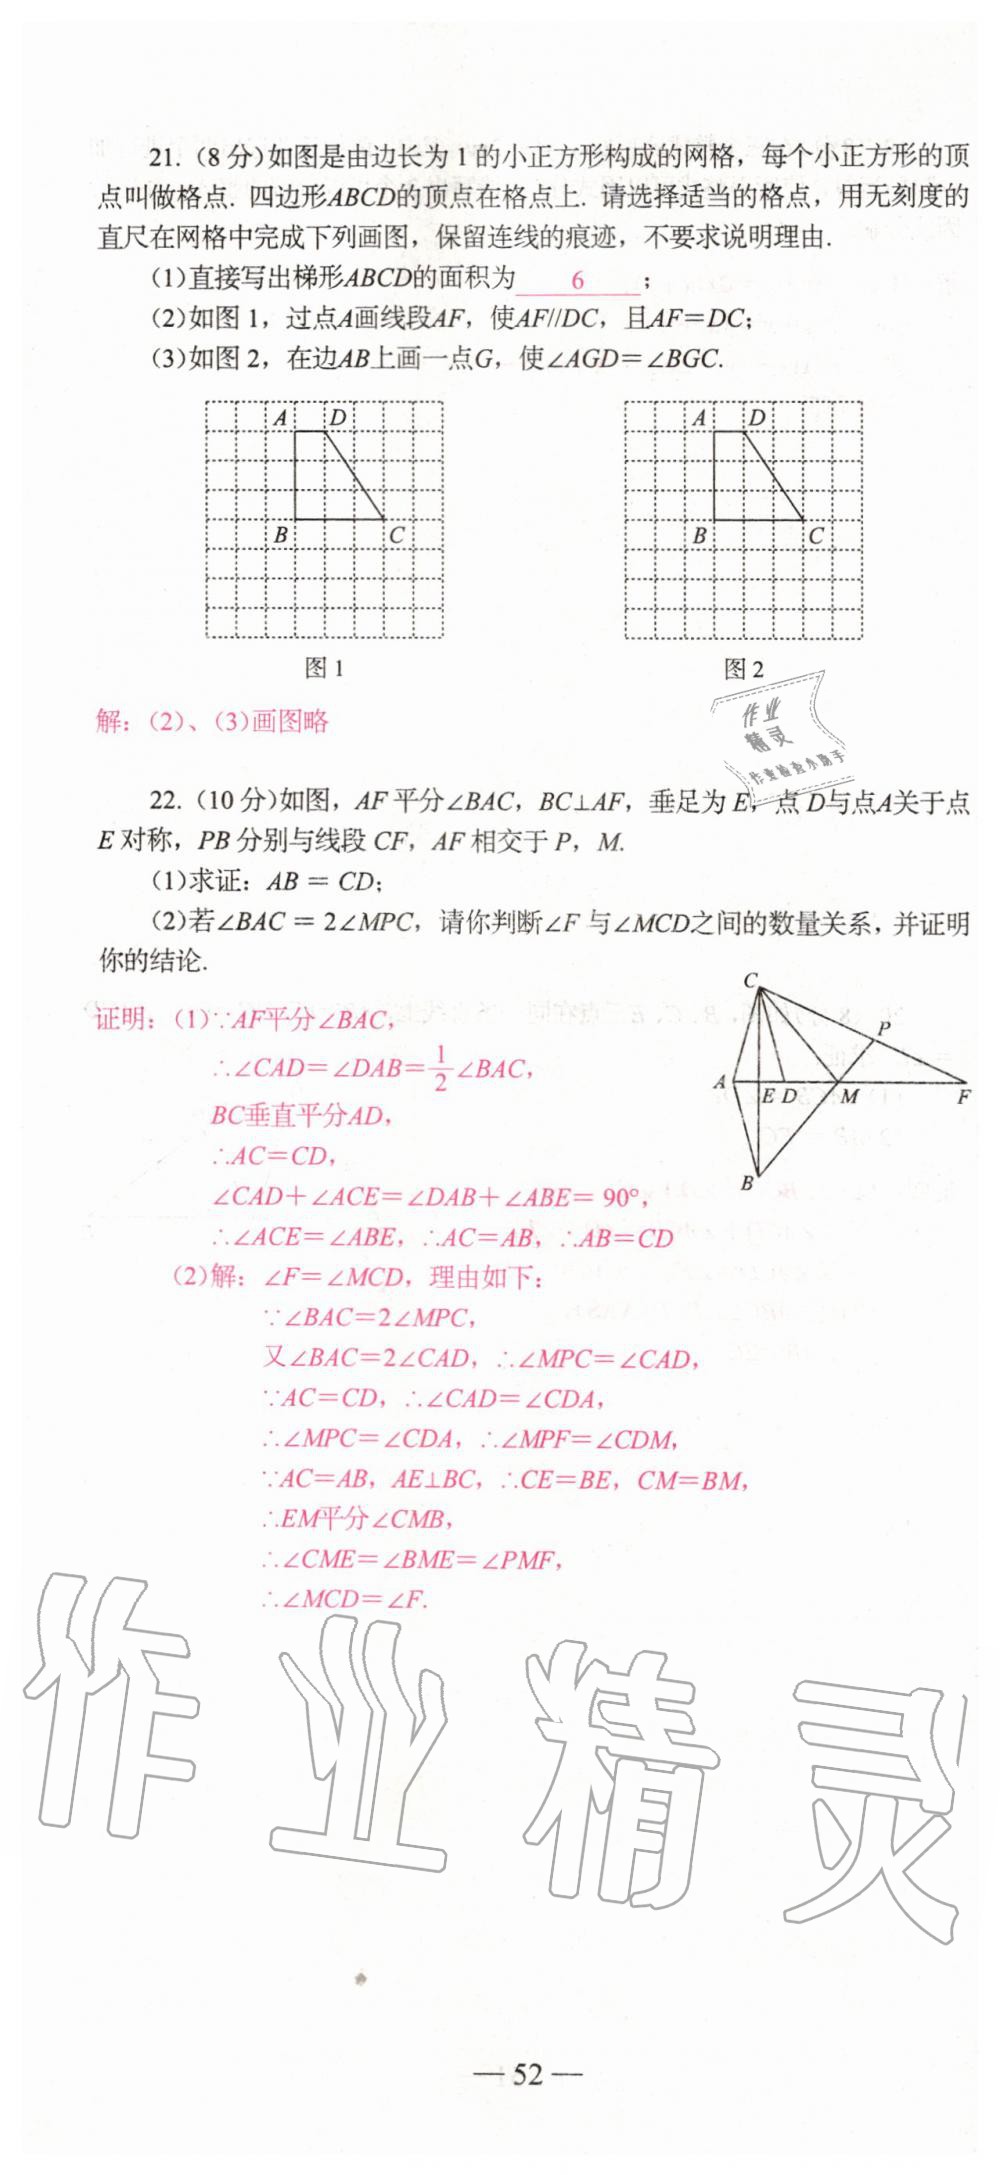 21.（8 分）如图是由边长为 1 的小正方形构成的网格，每个小正方形的顶
点叫做格点. 四边形ABCD的顶点在格点上. 请选择适当的格点，用无刻度的
直尺在网格中完成下列画图，保留连线的痕迹，不要求说明理由.
（1）直接写出梯形ABCD的面积为 6 ；
（2）如图 1，过点A画线段AF，使AF//DC，且AF＝DC；
（3）如图 2，在边AB上画一点G，使∠AGD＝∠BGC.
A D
B C
图 1
A D
B C
图 2
解：（2）、（3）画图略
作业
精灵
作业检查小助手
22.（10 分）如图，AF 平分∠BAC，BC⊥AF，垂足为 E，点 D与点A关于点
E 对称，PB 分别与线段 CF，AF 相交于 P，M.
（1）求证：AB ＝ CD；
（2）若∠BAC ＝ 2∠MPC，请你判断∠F 与∠MCD之间的数量关系，并证明
你的结论.
C
P
A E D M F
B
证明：（1）∵AF平分∠BAC，
∴∠CAD＝∠DAB＝1/2∠BAC，
BC垂直平分AD，
∴AC＝CD，
∠CAD＋∠ACE＝∠DAB＋∠ABE＝ 90°，
∴∠ACE＝∠ABE，∴AC＝AB，∴AB＝CD
（2）解：∠F＝∠MCD，理由如下：
∵∠BAC＝2∠MPC，
又∠BAC＝2∠CAD，∴∠MPC＝∠CAD，
∵AC＝CD，∴∠CAD＝∠CDA，
∴∠MPC＝∠CDA，∴∠MPF＝∠CDM，
∵AC＝AB，AE⊥BC，∴CE＝BE，CM＝BM，
∴EM平分∠CMB，
∴∠CME＝∠BME＝∠PMF，
∴∠MCD＝∠F.
作业精灵
— 52 —